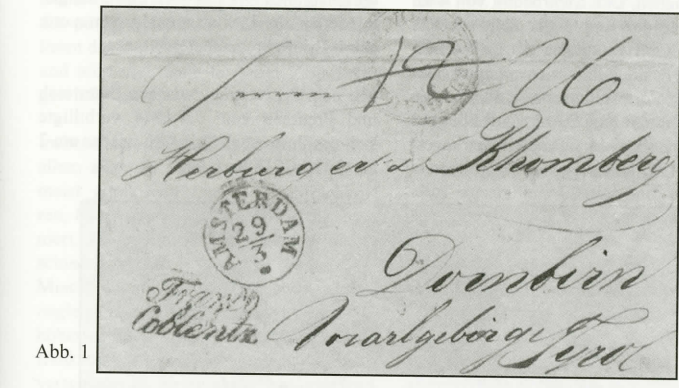 Herren 12 26
Herburger & Rhomberg
AMSTERDAM
29/3
Dornbirn
Franco
Coblentz
Vorarlgebörge
Tyrol
Abb. 1